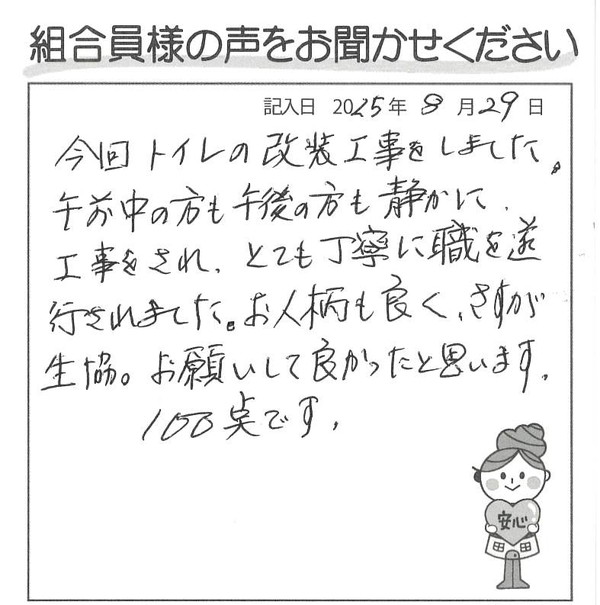 組合員様の声をお聞かせください
記入日 2025年 8月 29日
今回トイレの改装工事をしました。
午前中の方も午後の方も静かに、
工事をされ、とても丁寧に職を遂
行されました。お人柄も良く、さすが
生協。お願いして良かったと思います。
100点です。
安心